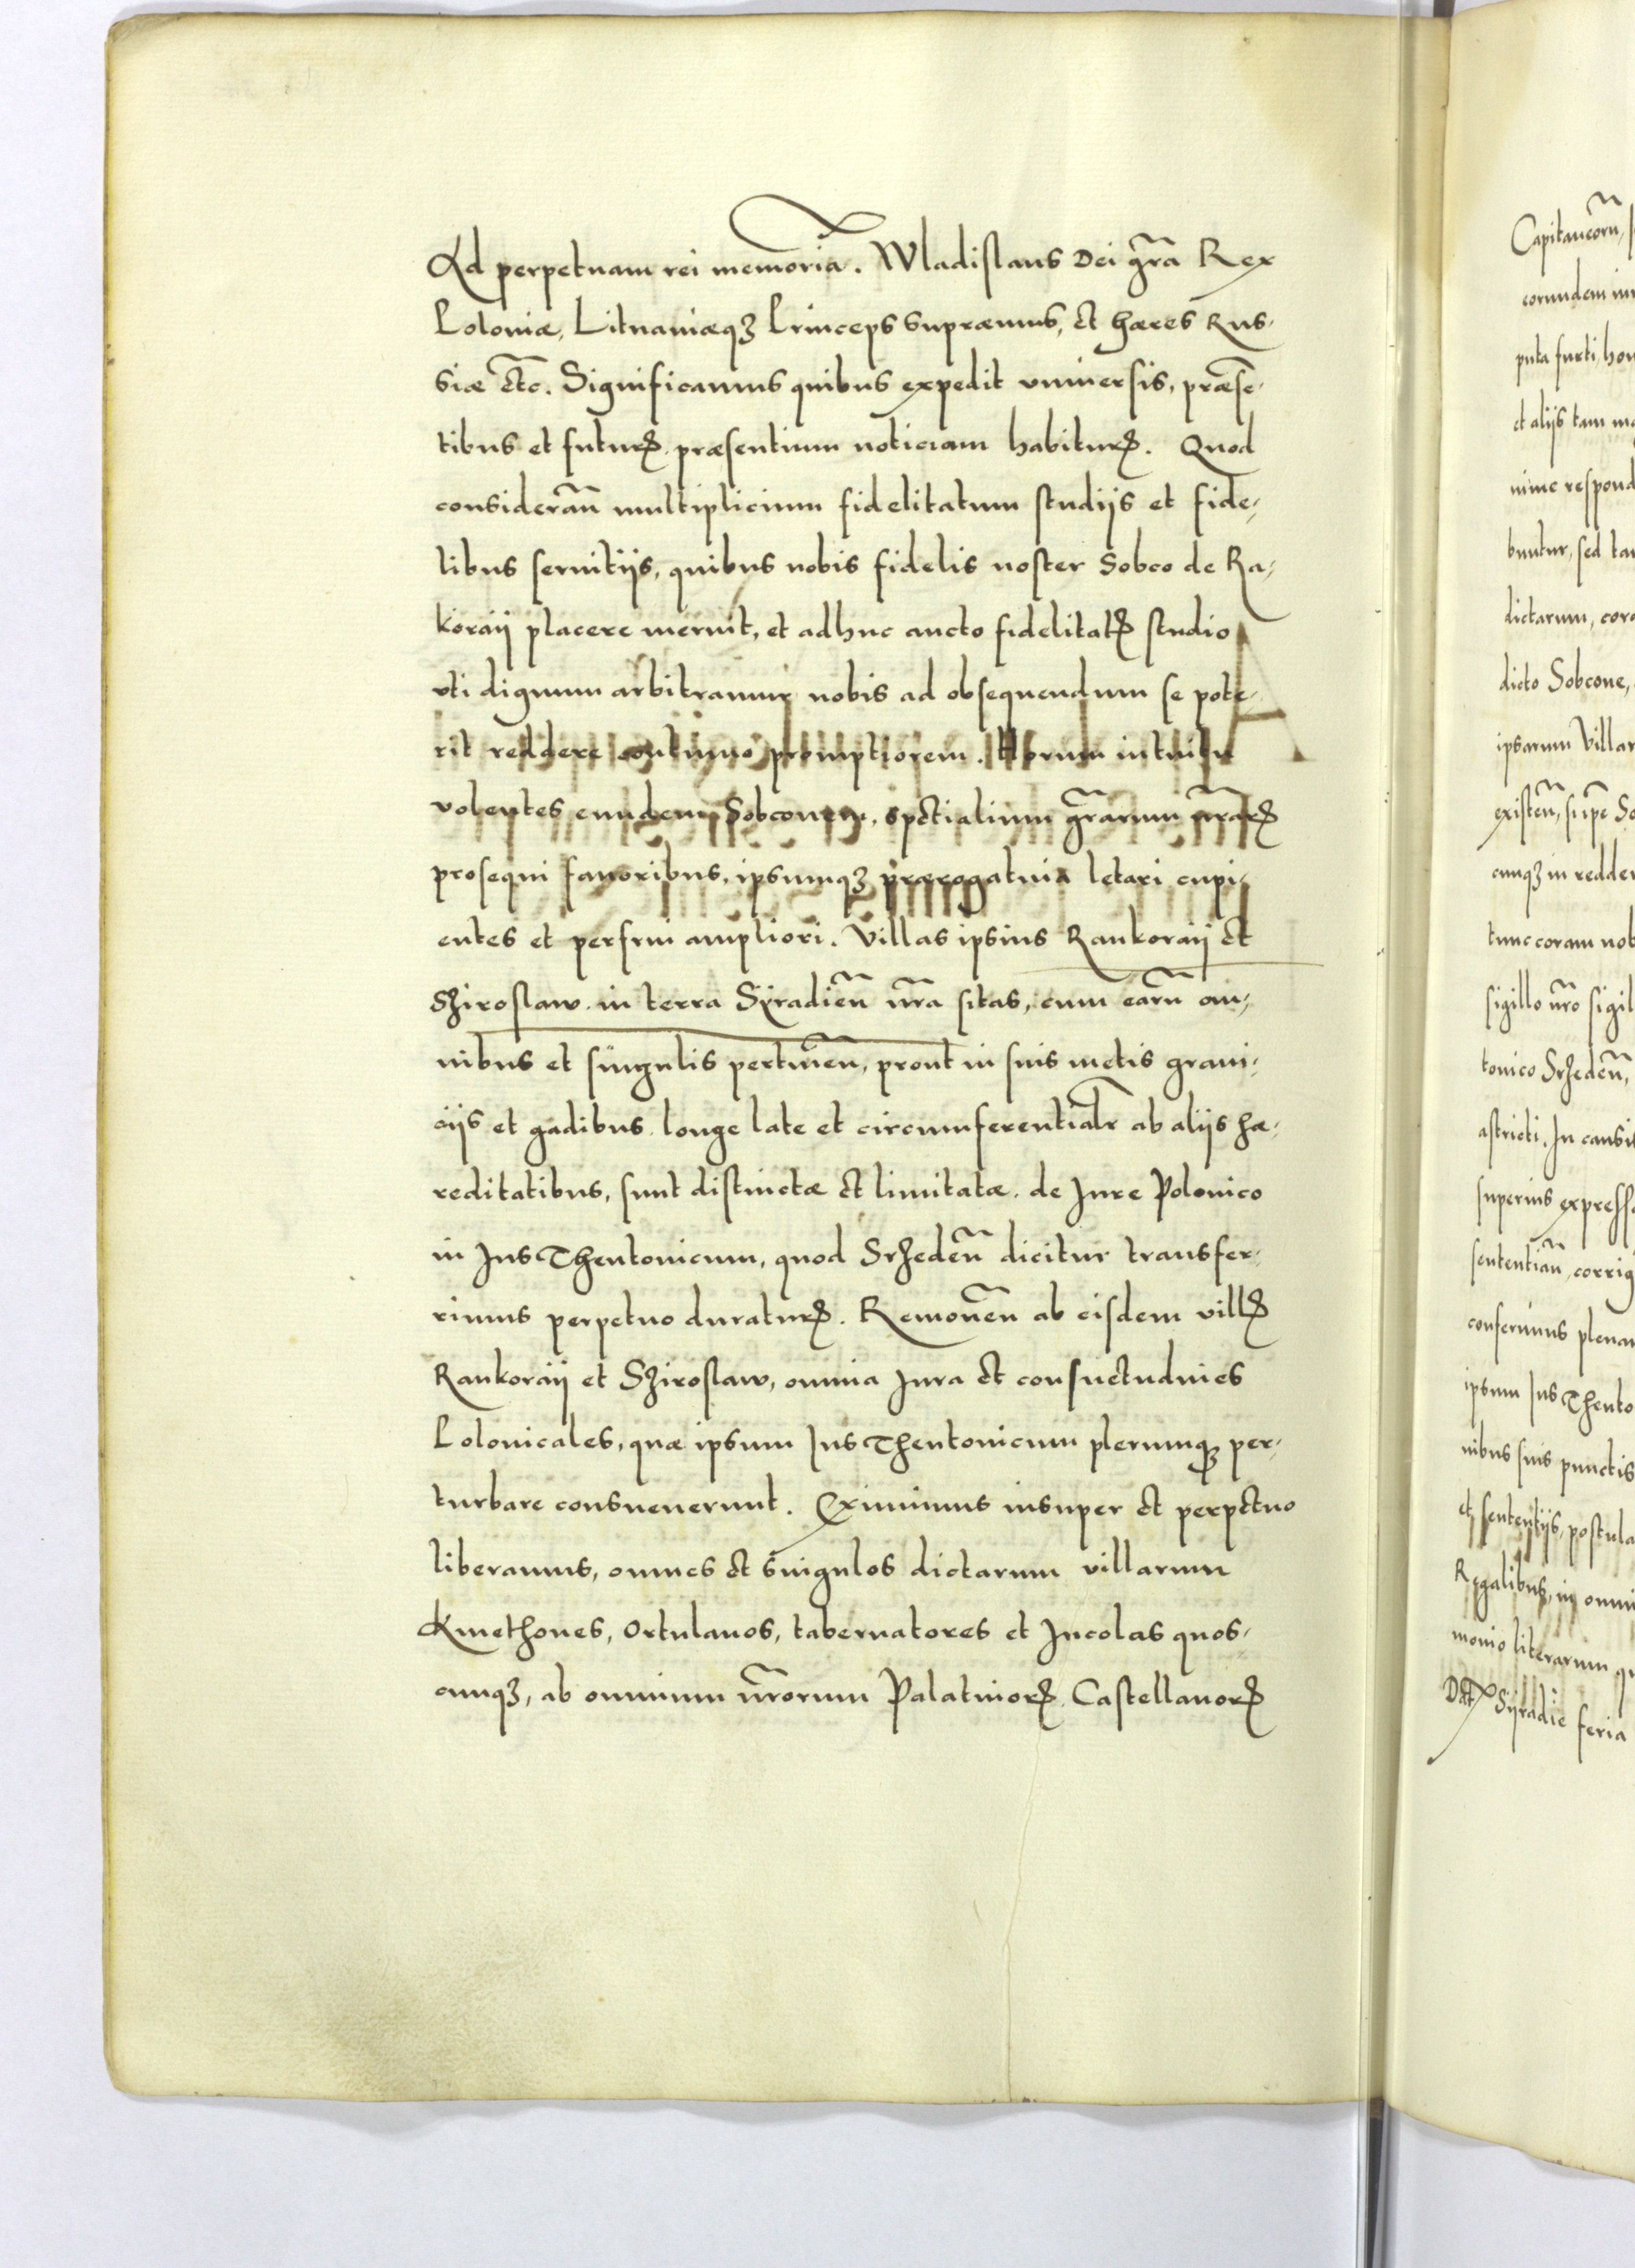 Ad perpetuam rei memoriã. Wladislaus Dei grã̃a Rex
Poloniæ, Lituaniæqꝫ Princeps Supræmus, et hæres Rus-
siæ etc̃. Significamus quibus expedit vniuersis, præ̃se-
tibus et futurꝭ præsentium noticiam habiturꝭ. Quod
considerañ multiplicium fidelitatum studijs et fide-
libus seruitijs, quibus nobis fidelis noster Sobco de Ra-
koraij placere meruit, et adhuc aucto fidelitatꝭ studio
vti dignum arbitramur nobis ad obsequendum se pote-
rit reddere continuo promptiorem. Horum intuitu
volentes eundem Sobconem, spetialium grãrum nrãrꝭ
prosequi fauoribus, ipsumqꝫ prærogatiua letari cupi-
entes et perfrui ampliori. Villas ipsius Rankoraij et
Shiroslaw in terra Syradieñ nrã sitas, cum earũ om-
nibus et singulis pertineñ, prout in suis metis grani-
cijs et gadibus longe late et circumferentialr̃ ab alijs hæ-
reditatibus, sunt distinctæ et limitatæ de Jure Polonico
in Jus Theutonicum, quod Srzedeñ dicitur transfer-
rimus perpetuo duraturꝭ. Remoueñ ab eisdem villꝭ
Rankoraij et Shiroslaw, omnia Jura et consuetudnies
Polonicales, quæ ipsum Jus Theutonicum plerumqꝫ per-
turbare consueuerunt. Eximimus insuper et perpetuo
liberamus, omnes et singulos dictarum villarum
Kmethones, Ortulanos, tabernatores et Incolas quos-
cunqꝫ, ab omnium nr̃orum Palatinorꝭ Castellanorꝭ
Capitaneorũ,
eorundem
puta furti, hom
et alijs tam ma
nime respond
buntur, sed tan
dictarum, cora
dicto Sobcone,
ipsarum Villar
existeñ, supẽ So
cunqꝫ in redder
tunc coram nob
sigillo nrõ sigil
tonico Srzedeñ,
astricti. In causi
superius expressi
sententiañ, corrig
conferimus plenar
ipsum Jus Theuto
nibus suis punctis
et sententijs, postula
Regalibus, in omni
monio literarum qu
Dat Syradie feria